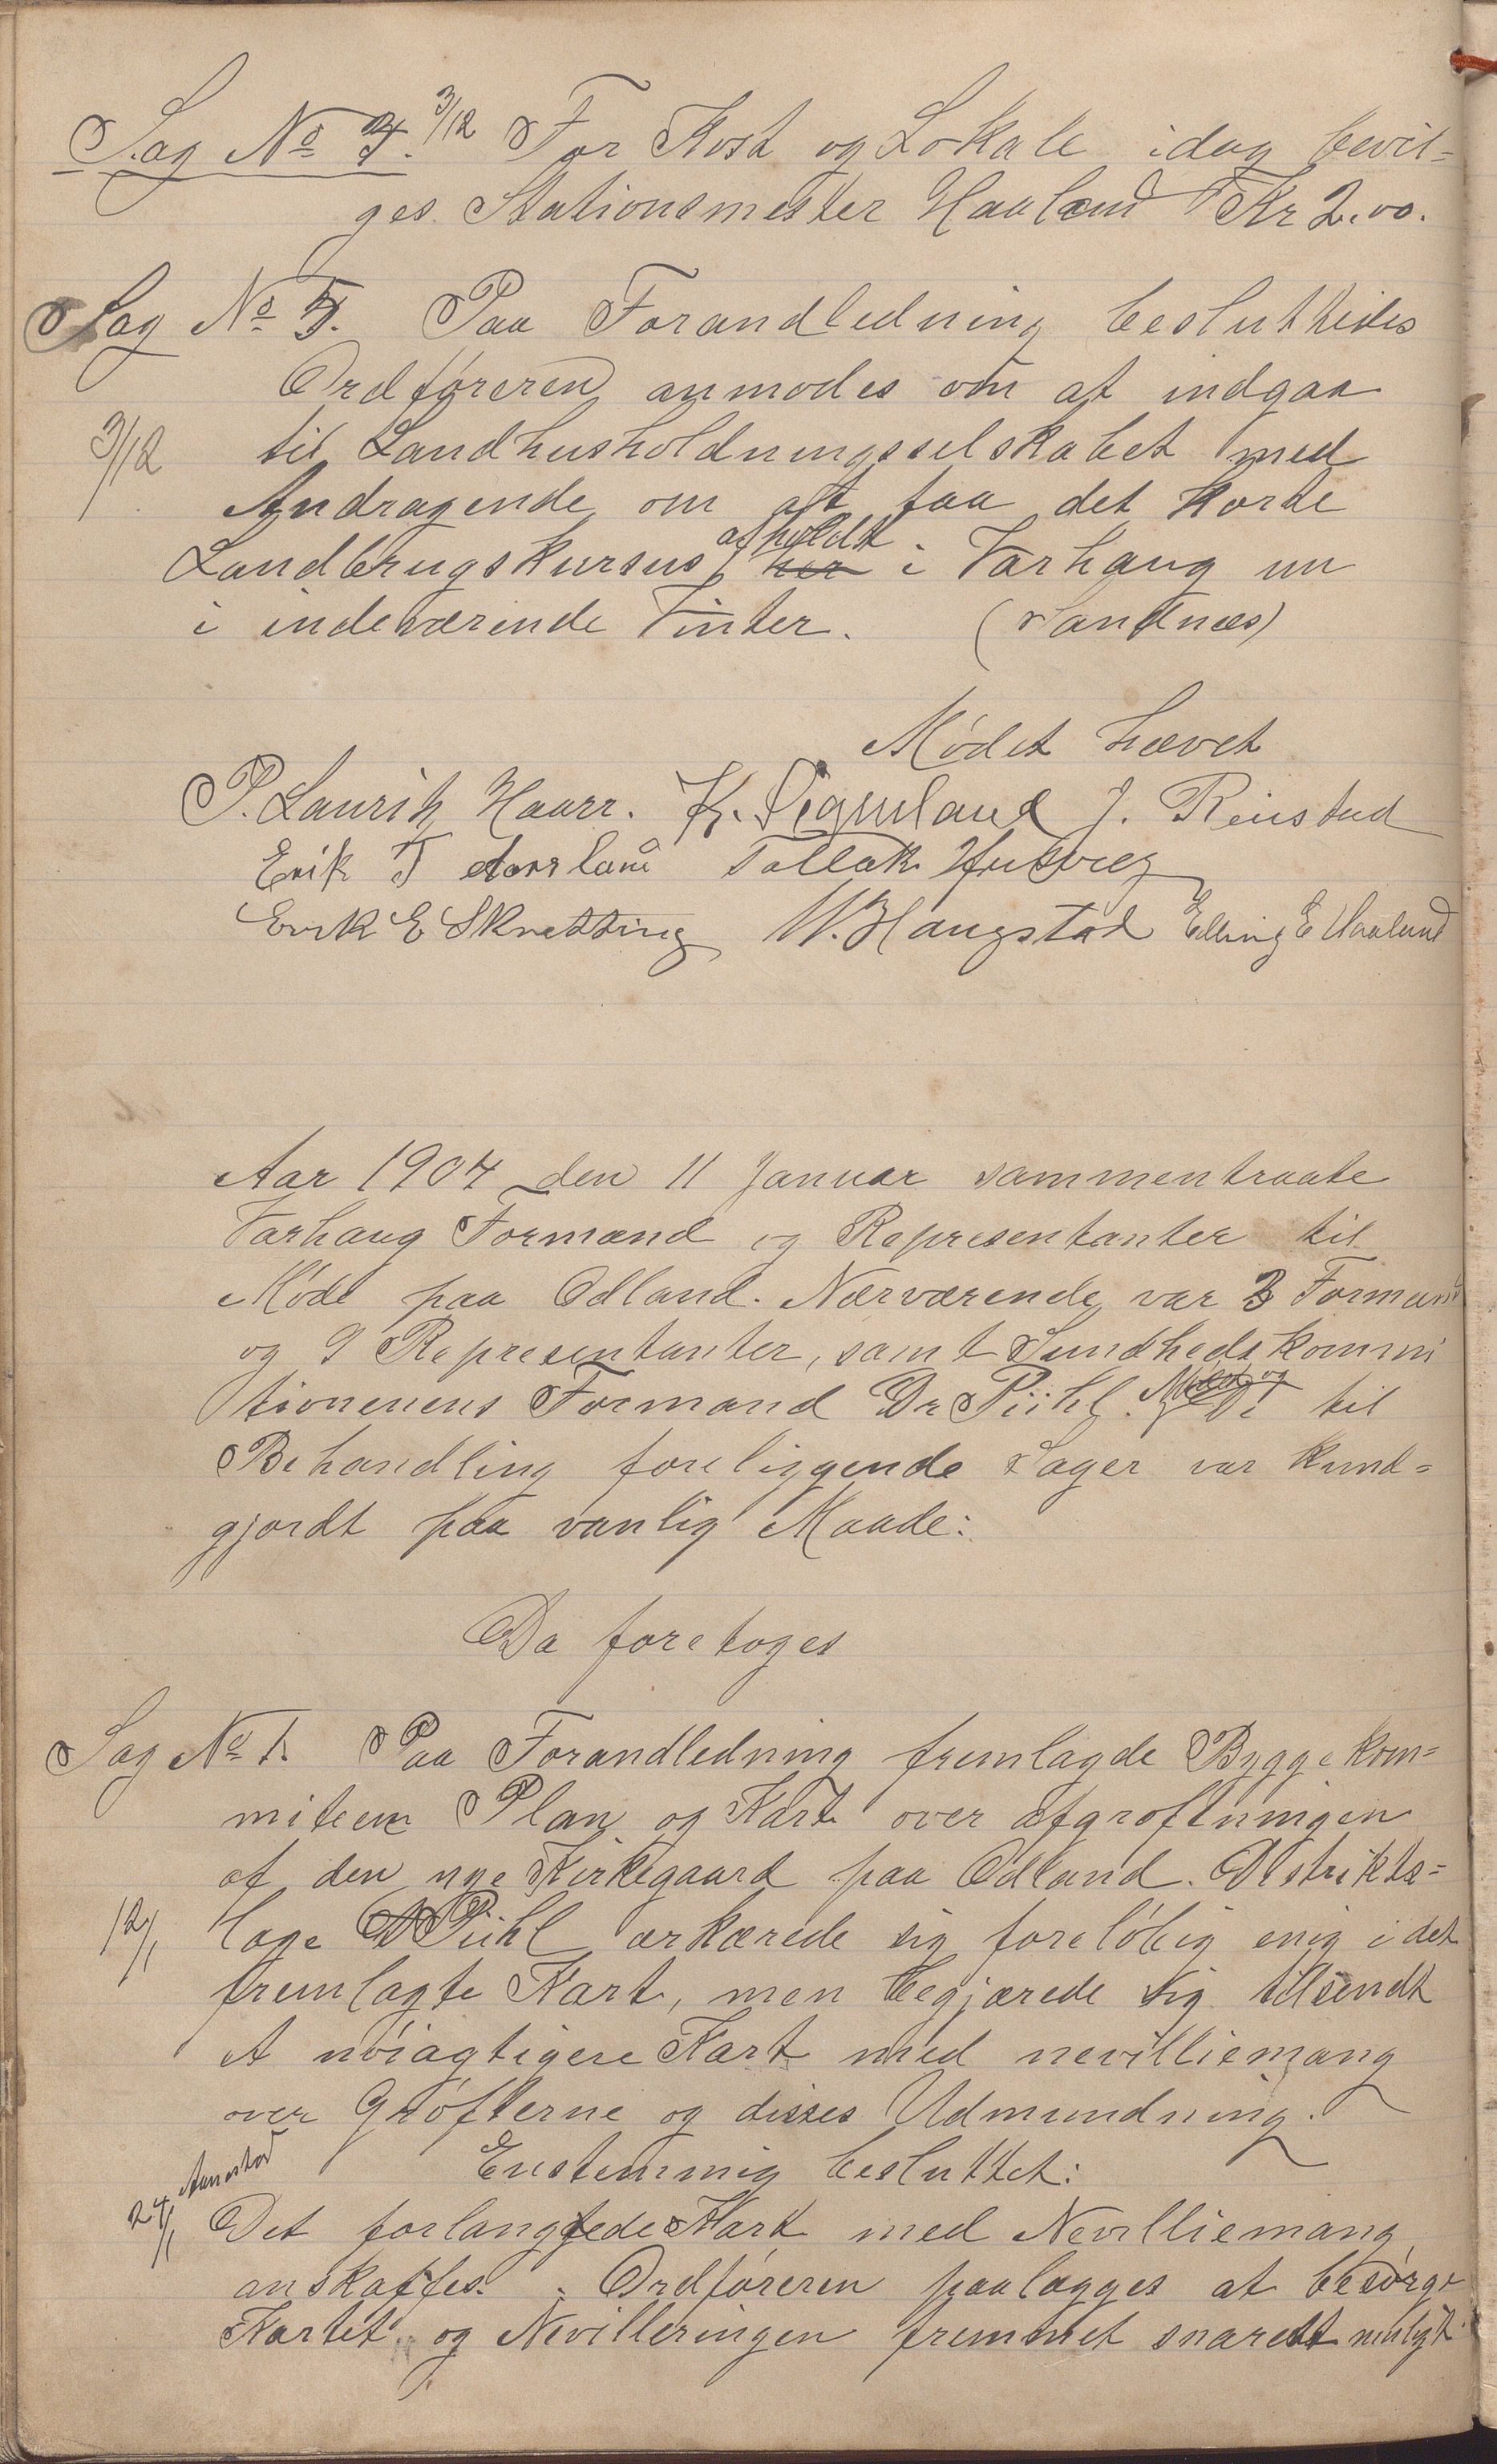 Sag No 4. 3/12 For Kost og Lokale idag bevil=
ges Stationsmester Haaland Kr 2.00.
Sag No 5. Paa Forandledning besluttedes
Ordføreren anmodes om at indgaa
3/12 til Landhusholdningsselskabet med
Andragende om at faa det korte
Landbrugskursus afholdt her i Varhaug nu
i indeværende Vinter. (Sandnæs)
Mødet hævet
P. Lauritz Haarr. K. Sigmland J. Reinstad
Erik T Aarsland Tollak
Erik E Skretting W. Haugstad Elling E Haaland
Aar 1904 den 11 Januar sammentraate
Varhaug Formænd og Representanter til
Møde paa Odland. Nærværende var 3 Formænd
og 9 Representanter, samt Sundhedskommi
tionenens Formand Dr Pühl. Mødet og De til
Behandling foreliggende Sager var kund=
gjordt paa vanlig Maade:
Da foretoges
Sag No 1. Paa Forandledning fremlagde Byggekom=
miteen Plan og Kart over afgrøftningen
af den nye Kirkegaard paa Odland. Distrikts=
12/1 læge Pühl erkærede sig foreløbig enig i det
fremlagte Kart, men begjærede sig tilsendt
et nøiagtigere Kart med nevilliemang
over Grøfterne og disses Udmundning.
Enstemmig besluttet:
24/1 Aanestad
Det forlangtede Kart med Nevilliemang
anskaffes. Ordføreren paalægges at besørge
Kartet og Nevilleringen fremmet snarest muligt.